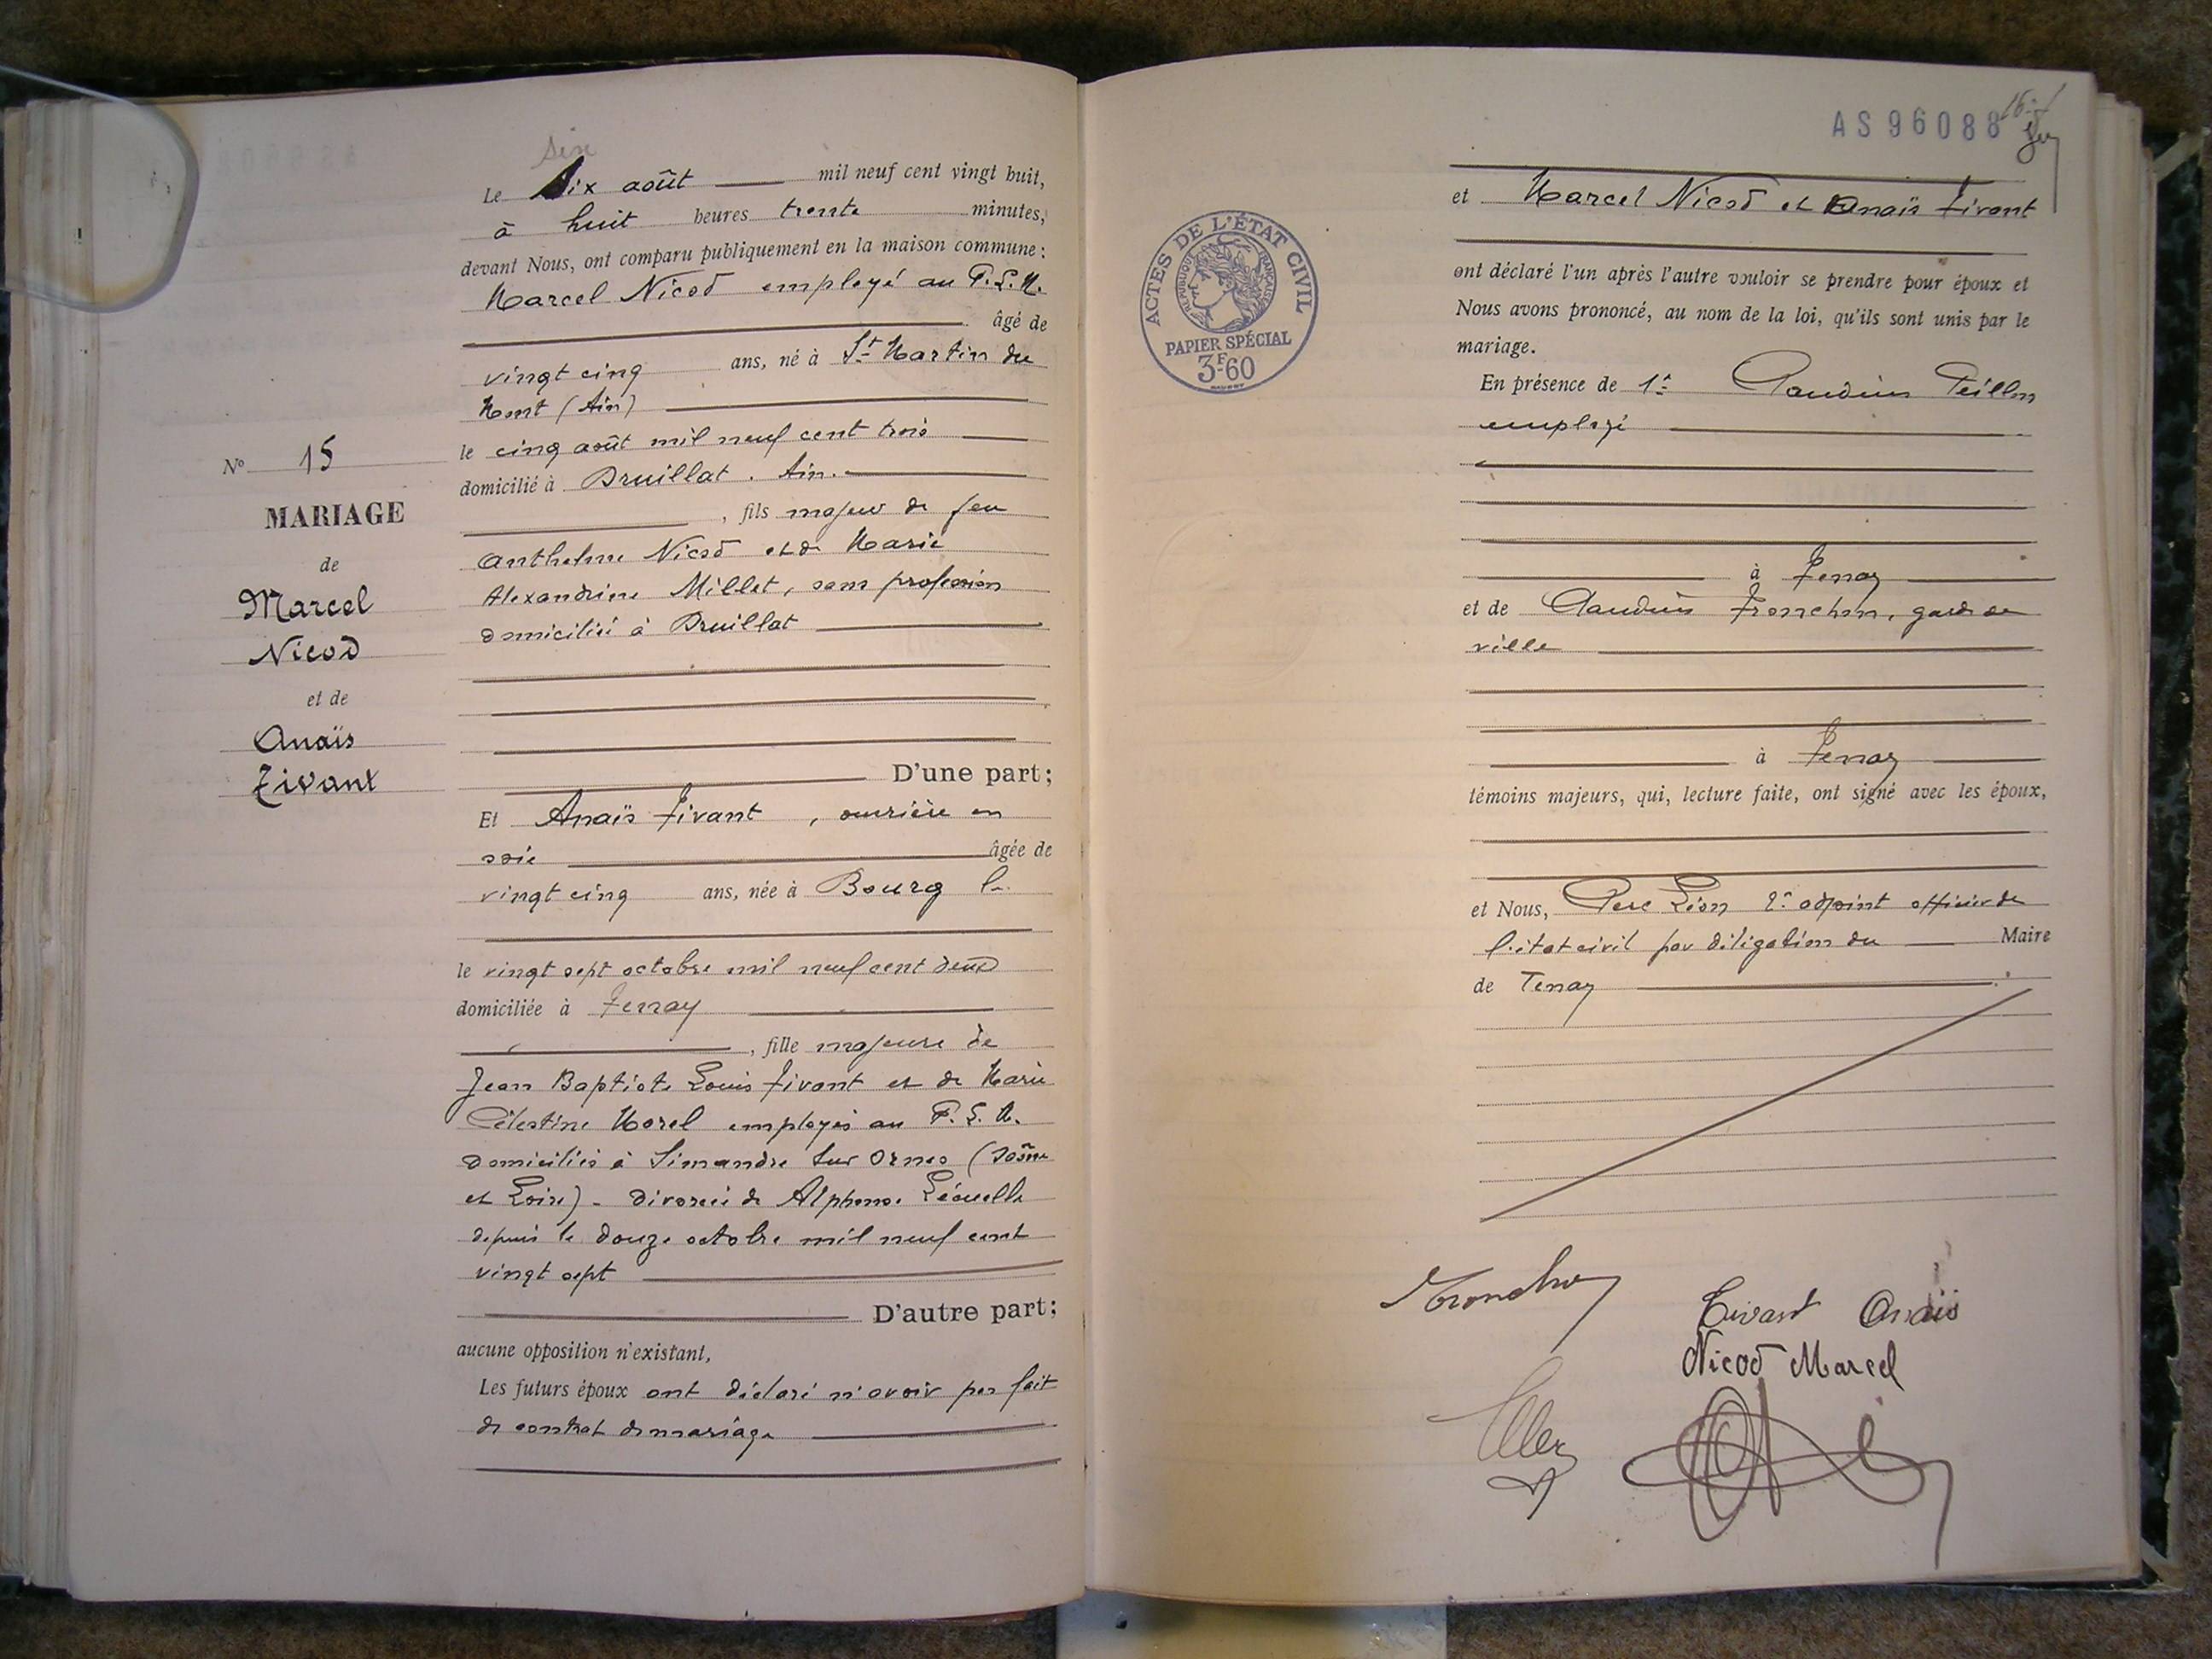 six
Le Six août mil neuf cent vingt huit,
à huit heures trente minutes,
devant Nous, ont comparu publiquement en la maison commune :
Marcel Nicod employé au P.L.M.
âgé de
vingt cinq ans, né à St Martin du
Mont (Ain)
le cinq août mil neuf cent trois
domicilié à Druillat . Ain.
, fils majeur de feu
Anthelme Nicod et de Marie
Alexandrine Millet, sans profession
domicilié à Druillat
D'une part ;
Et Anaïs Tivant , ouvrière en
soie âgée de
vingt cinq ans, née à Bourg
le vingt sept octobre mil neuf cent deux
domiciliée à Tenay
, fille majeure de
Jean Baptiste Louis Tivant et de Marie
Célestine Morel employés au P.L.M.
domiciliés à Simandre sur Ornes (Saône
et Loire) - divorcée de Alphonse
depuis le douze octobre mil neuf cent
vingt sept
D'autre part ;
aucune opposition n'existant,
Les futurs époux ont déclaré n'avoir pas fait
de contrat de mariage
No 15
MARIAGE
de
Marcel
Nicod
et de
Anaïs
Tivant
AS96088
ACTES DE L'ÉTAT CIVIL
RÉPUBLIQUE FRANÇAISE
PAPIER SPÉCIAL
3F60
et Marcel Nicod et Anaïs Tivant
ont déclaré l'un après l'autre vouloir se prendre pour époux et
Nous avons prononcé, au nom de la loi, qu'ils sont unis par le
mariage.
En présence de 1º Claudius Peillon
employé
à Tenay
et de Claudius Tronchon, garde de
ville
à Tenay
témoins majeurs, qui, lecture faite, ont signé avec les époux,
et Nous, Perc Léon 2e adjoint officier de
l'état civil par délégation du Maire
de Tenay
Tronchon
Tivant Anaïs
Nicod Marcel